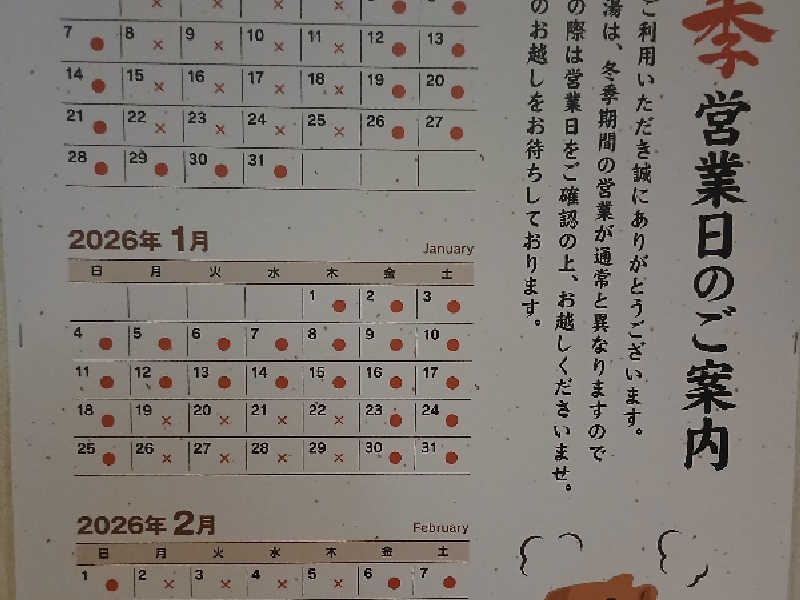 季 営業日のご案内
ご利用いただき誠にありがとうございます。
湯は、冬季期間の営業が通常と異なりますので
の際は営業日をご確認の上、お越しくださいませ。
のお越しをお待ちしております。
7 ● 8 × 9 × 10 × 11 × 12 ● 13 ●
14 ● 15 × 16 × 17 × 18 × 19 ● 20 ●
21 ● 22 × 23 × 24 × 25 × 26 ● 27 ●
28 ● 29 ● 30 ● 31 ●
2026年 1月 January
日 月 火 水 木 金 土
1 ● 2 ● 3 ●
4 ● 5 ● 6 ● 7 ● 8 ● 9 ● 10 ●
11 ● 12 ● 13 ● 14 ● 15 ● 16 ● 17 ●
18 ● 19 × 20 × 21 × 22 × 23 ● 24 ●
25 ● 26 × 27 × 28 × 29 × 30 ● 31 ●
2026年 2月 February
日 月 火 水 木 金 土
1 ● 2 × 3 × 4 × 5 × 6 ● 7 ●